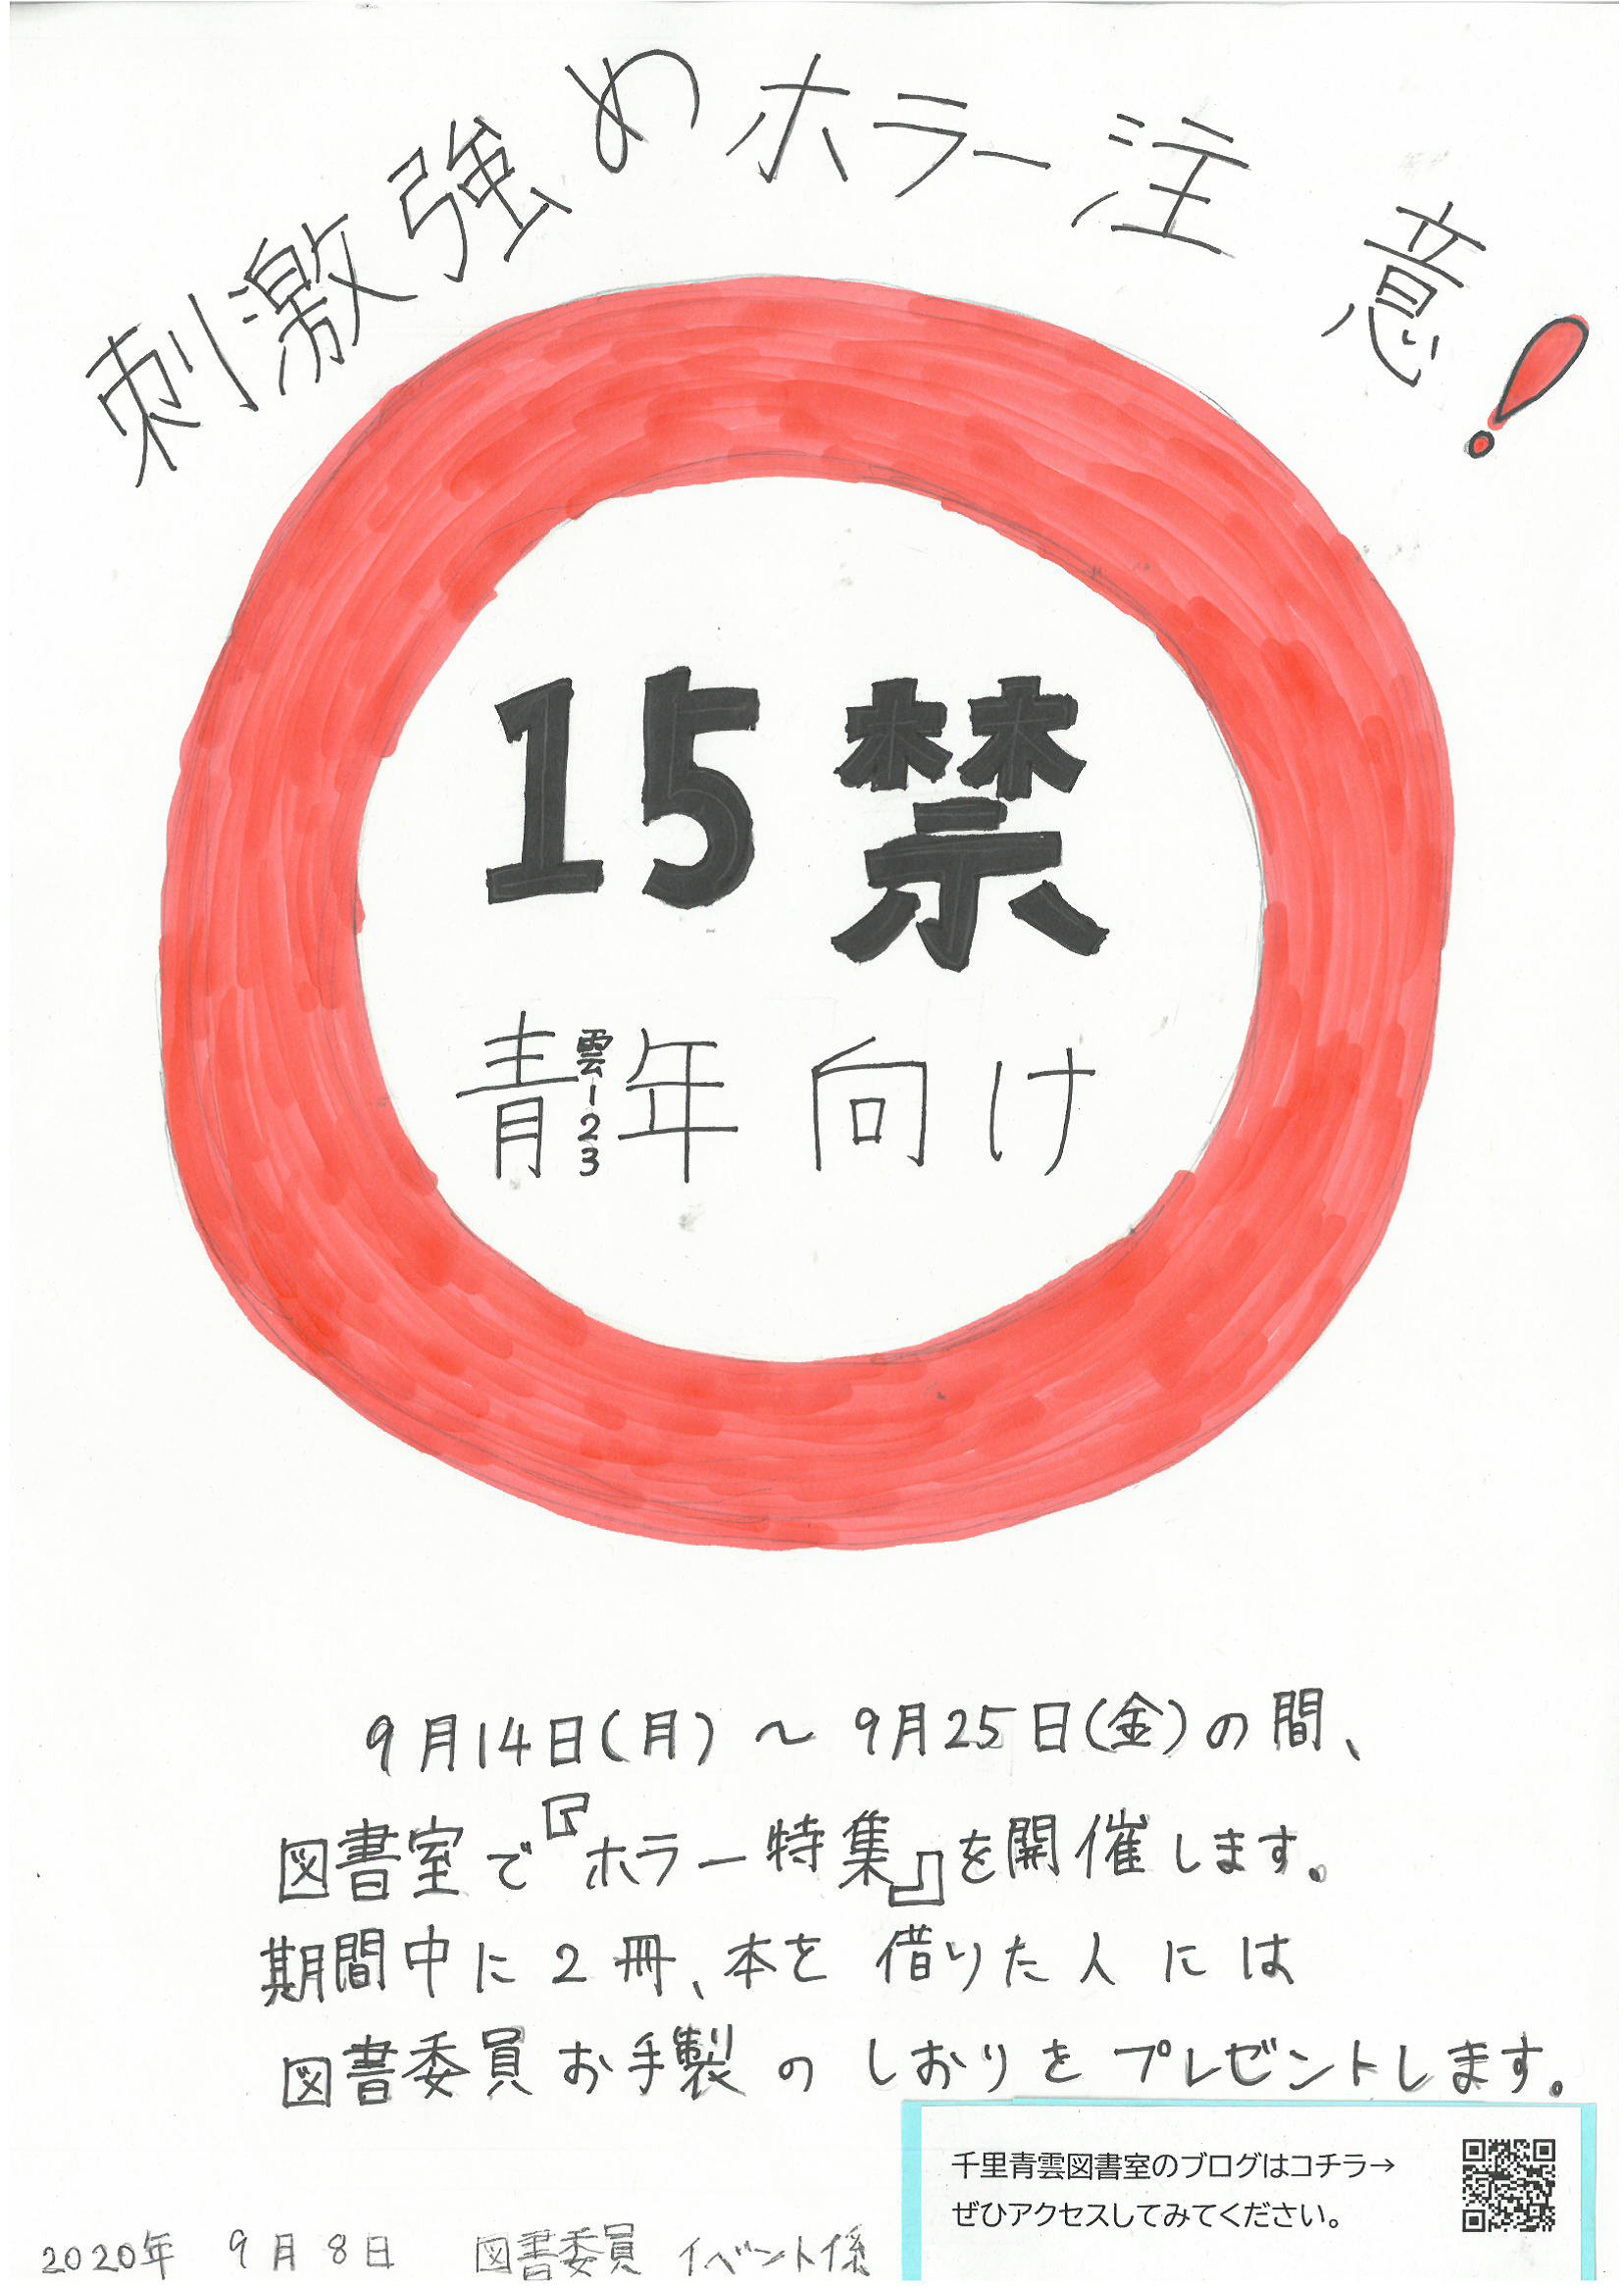 刺激強めホラー注意!
15禁
青雲-123年向け
9月14日(月)～9月25日(金)の間、
図書室で『ホラー特集』を開催します。
期間中に2冊、本を借りた人には
図書委員お手製のしおりをプレゼントします。
千里青雲図書室のブログはコチラ→
ぜひアクセスしてみてください。
2020年 9月8日 図書委員 イベント係